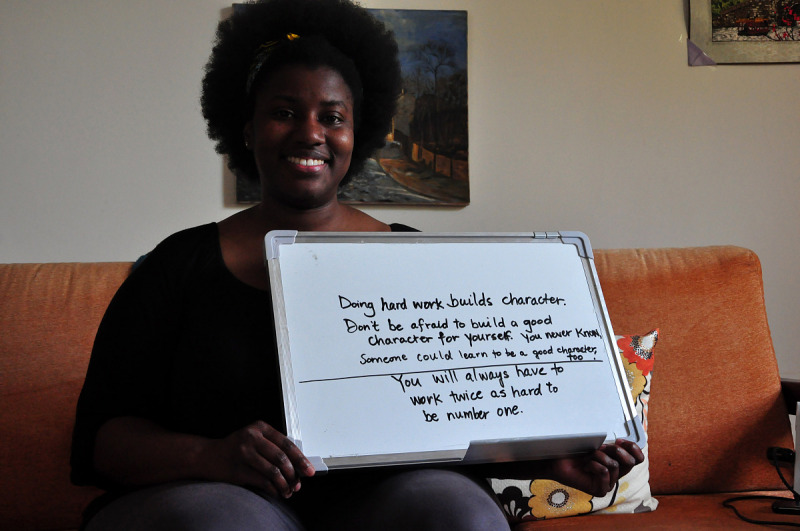 Doing hard work builds character.
Don't be afraid to build a good
character for yourself. You never know,
Someone could learn to be a good character,
too.
You will always have to
work twice as hard to
be number one.